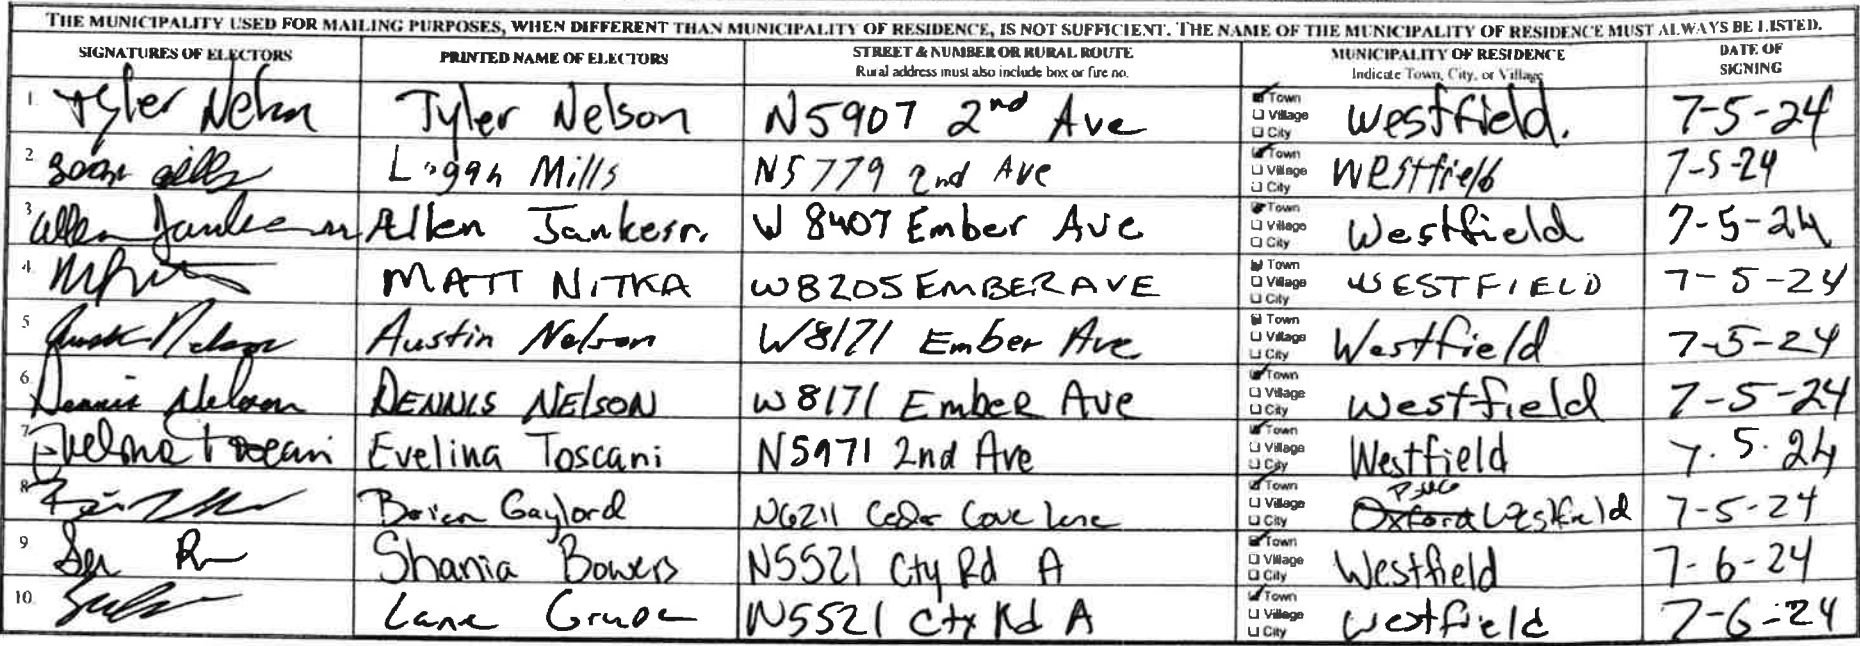 THE MUNICIPALITY USED FOR MAILING PURPOSES, WHEN DIFFERENT THAN MUNICIPALITY OF RESIDENCE, IS NOT SUFFICIENT. THE NAME OF THE MUNICIPALITY OF RESIDENCE MUST ALWAYS BE LISTED.
SIGNATURES OF ELECTORS PRINTED NAME OF ELECTORS STREET & NUMBER OR RURAL ROUTE MUNICIPALITY OF RESIDENCE DATE OF
Rural address must also include box or fire no. Indicate Town, City, or Village SIGNING
1. Tyler Nelson Tyler Nelson N5907 2nd Ave Town Village City Westfield. 7-5-24
2. Mills N5779 2nd Ave Town Village City Westfield 7-5-24
3. Allen W 8407 Ember Ave Town Village City Westfield 7-5-24
4. MATT NITKA W8205 EMBER AVE Town Village City WESTFIELD 7-5-24
5 Austin Nelson W8171 Ember Ave Town Village City Westfield 7-5-24
6. Dennis Nelson DENNIS NELSON W8171 Ember Ave Town Village City Westfield 7-5-24
7. Evelina Toscani Evelina Toscani N5971 2nd Ave Town Village City Westfield 7.5.24
8. Brian Gaylord N6211 Cedar Cove Lane Town Village City Oxford Westfield 7-5-24
9 Shania Bowers N5521 Cty Rd A Town Village City Westfield 7-6-24
10. Lane N5521 Cty Rd A Town Village City Westfield 7-6-24